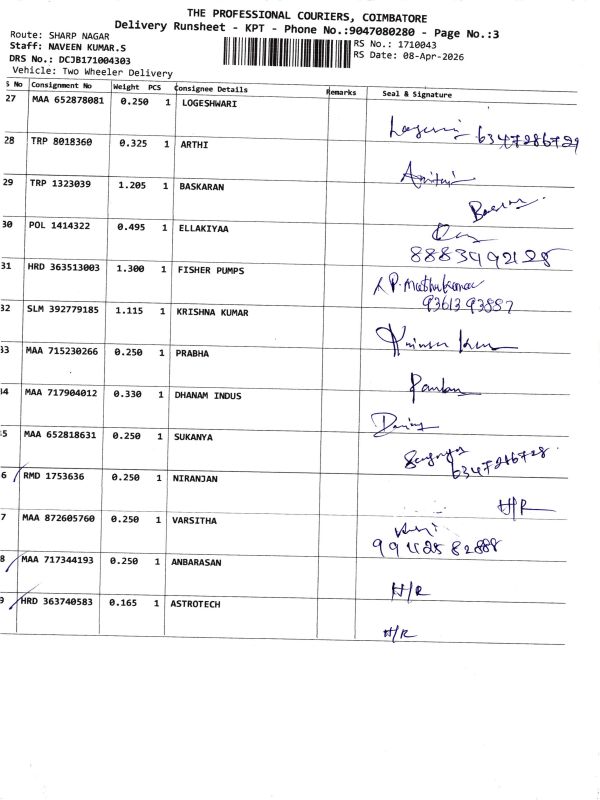 THE PROFESSIONAL COURIERS, COIMBATORE
Delivery Runsheet - KPT - Phone No.:9047080280 - Page No.:3
Route: SHARP NAGAR
Staff: NAVEEN KUMAR.S
DRS No.: DCJB171004303
Vehicle: Two Wheeler Delivery
RS No.: 1710043
RS Date: 08-Apr-2026
S No Consignment No Weight PCS Consignee Details Remarks Seal & Signature
27 MAA 652878081 0.250 1 LOGESHWARI
6347286729
28 TRP 8018360 0.325 1 ARTHI
29 TRP 1323039 1.205 1 BASKARAN
30 POL 1414322 0.495 1 ELLAKIYAA
8883992128
31 HRD 363513003 1.300 1 FISHER PUMPS
P. Muthukumar
9361393887
32 SLM 392779185 1.115 1 KRISHNA KUMAR
33 MAA 715230266 0.250 1 PRABHA
34 MAA 717904012 0.330 1 DHANAM INDUS
5 MAA 652818631 0.250 1 SUKANYA
6347286728
6 RMD 1753636 0.250 1 NIRANJAN
H/R
7 MAA 872605760 0.250 1 VARSITHA
8 MAA 717344193 0.250 1 ANBARASAN
H/R
9 HRD 363740583 0.165 1 ASTROTECH
H/R